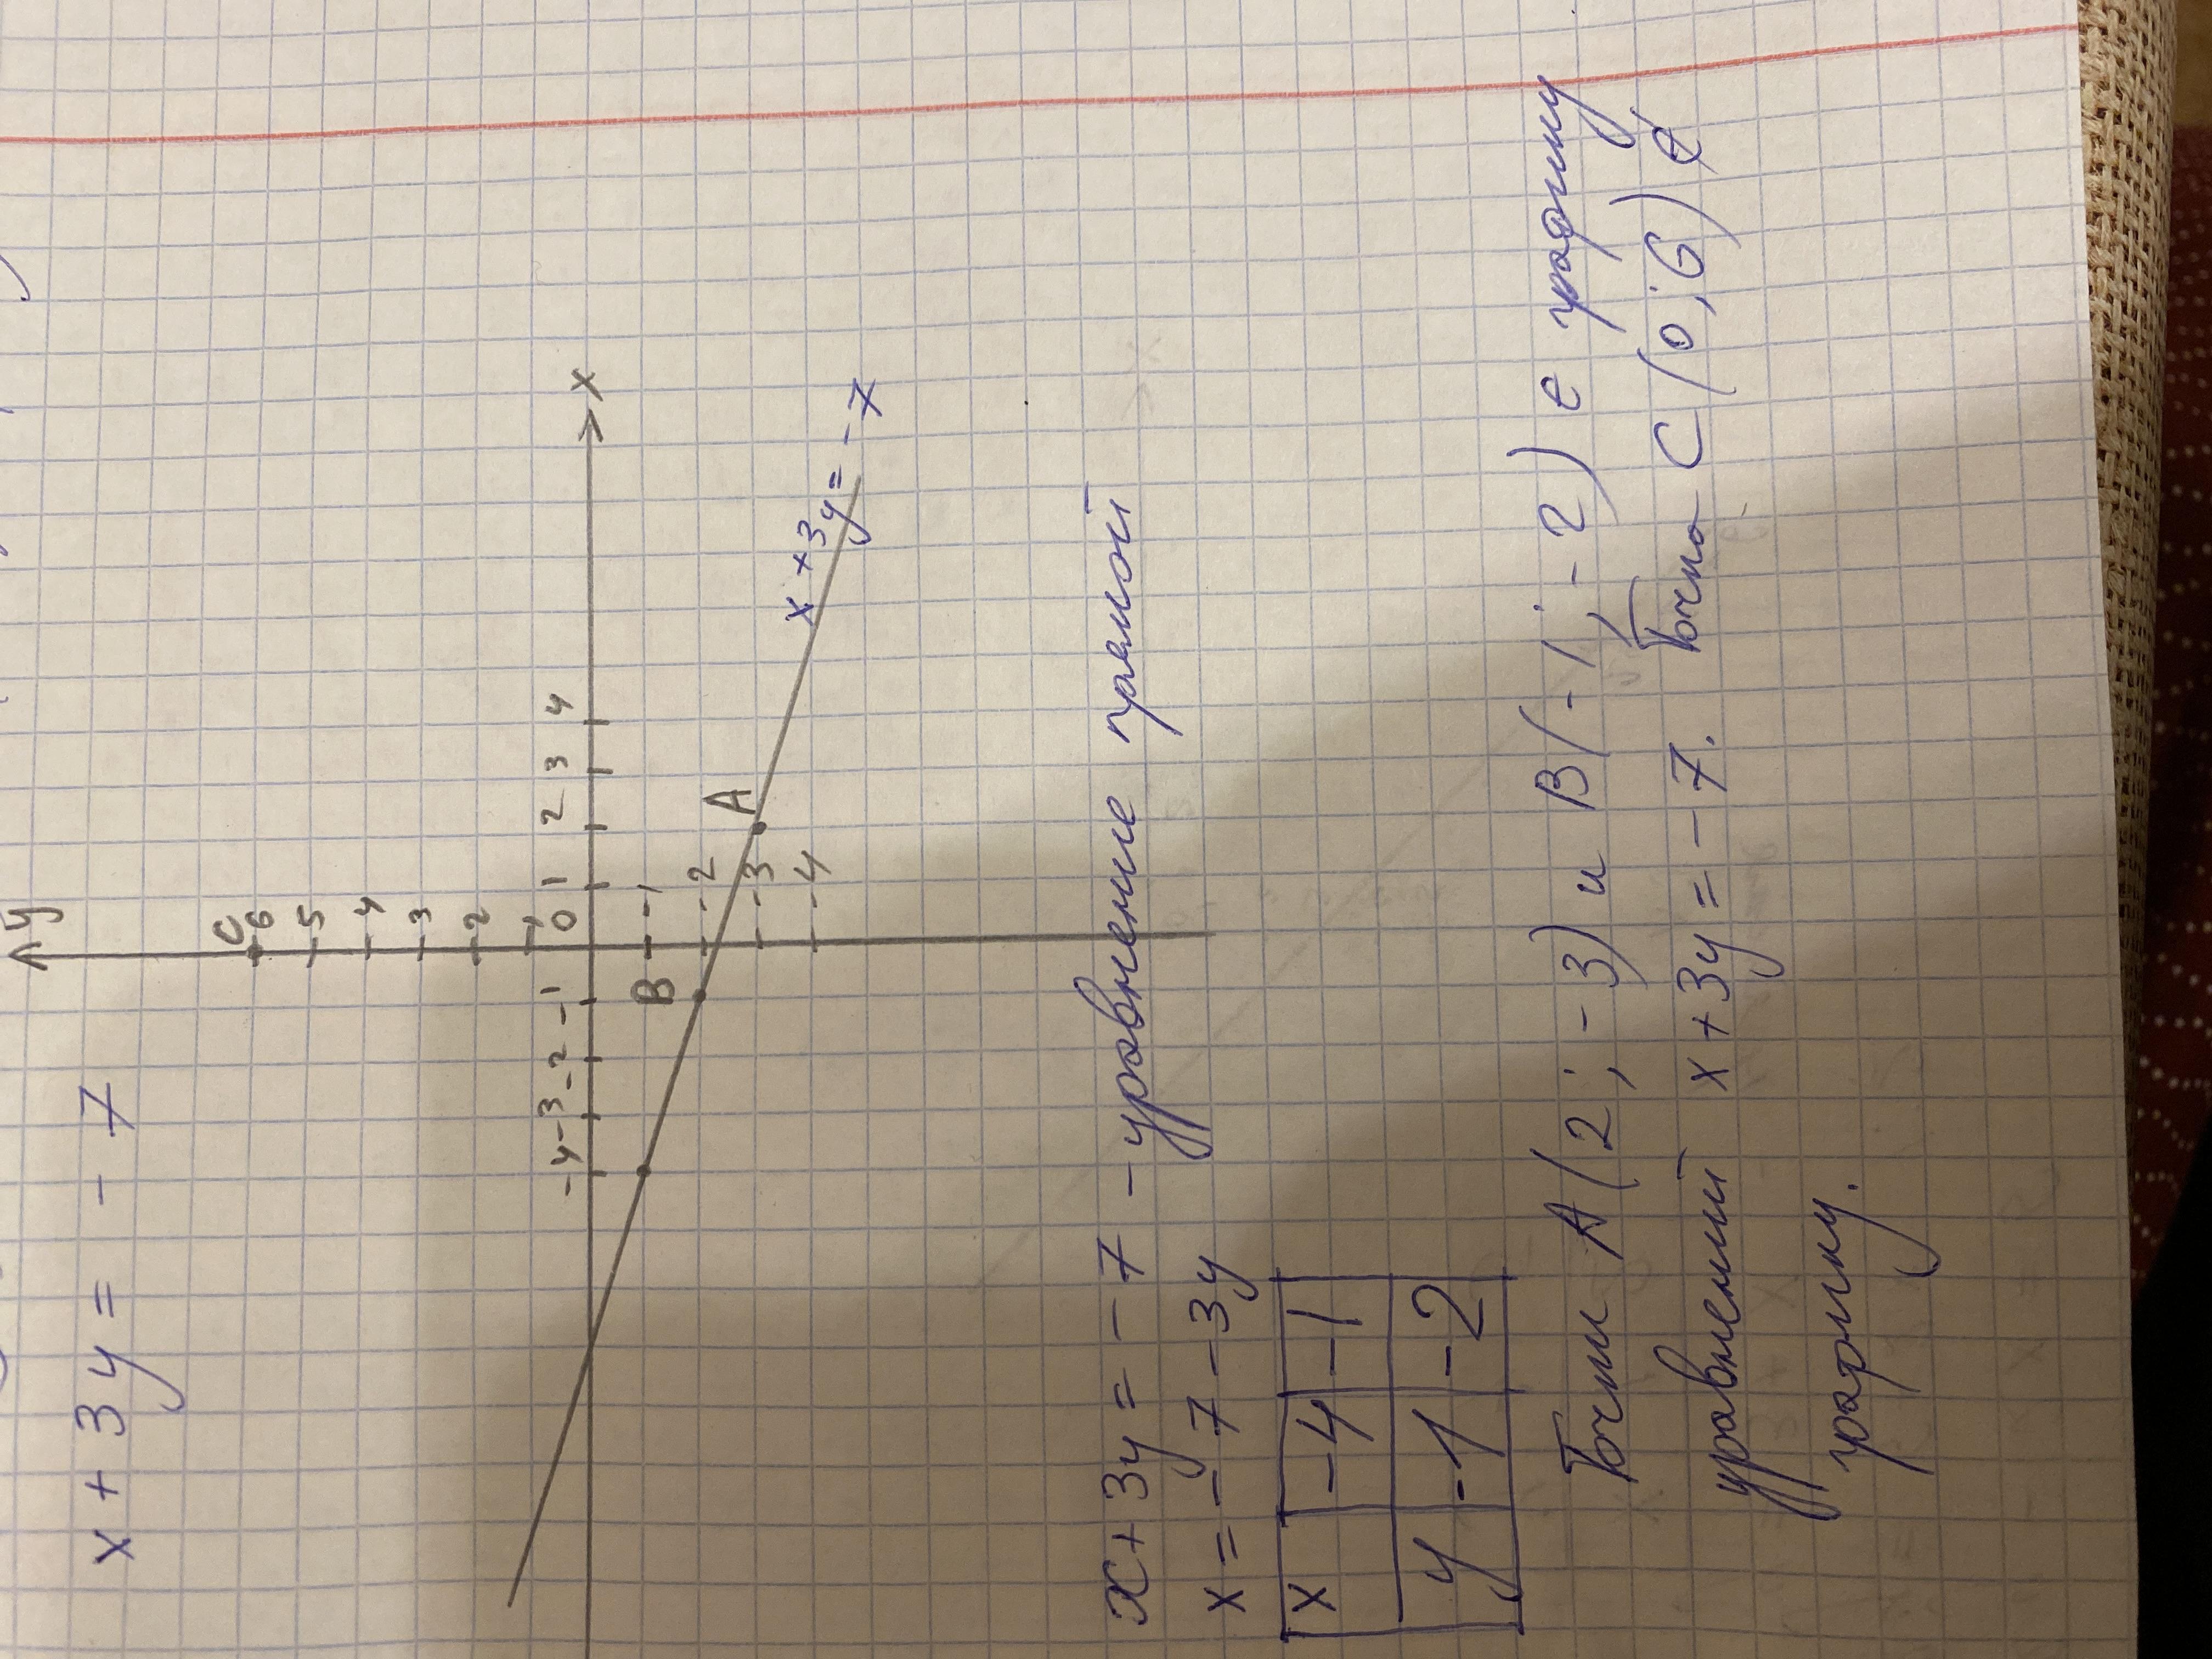 x + 3y = - 7
y
C
6
5
4
3
2
1
-4 -3 -2 -1 0 1 2 3 4 x
B -1
-2 A
-3
-4
x + 3y = -7
x + 3y = - 7 - уравнение прямой
x = - 7 - 3y
x -4 -1
y -1 -2
Точки A (2 ; -3) и B (-1 ; -2) ∈ графику
уравнений x + 3y = -7. Точка C (0 ; 6) ∉
графику.